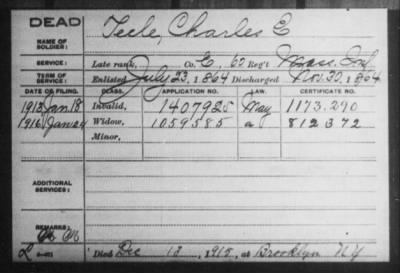 DEAD
NAME OF SOLDIER: Teele, Charles E
SERVICE: Late rank, Co. E, 60 Reg't Mass. Inf
TERM OF SERVICE: Enlisted July 23, 1864 Discharged Nov. 30, 1864
DATE OF FILING. CLASS. APPLICATION NO. LAW. CERTIFICATE NO.
Jan. 18 Invalid, 1407925 May 1173.290
1916 Jan 24 Widow, 1059585 a 812372
Minor,
ADDITIONAL SERVICES:
REMARKS:
Died Dec 13, 1915, at Brooklyn NY